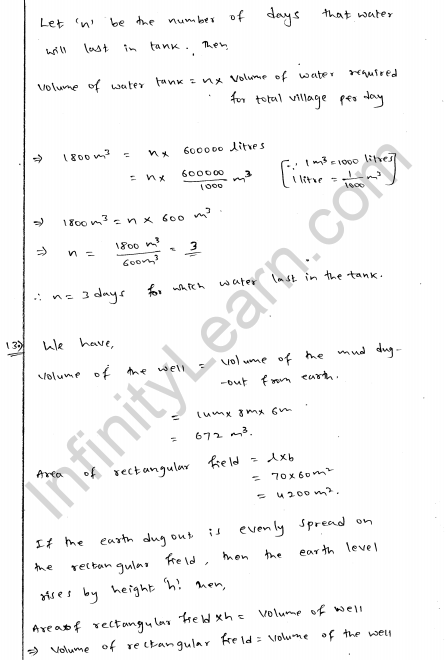 Let 'n' be the number of days that water
will last in tank. Then,
Volume of water tank = n x Volume of water required
for total village per day
⇒ 1800m³ = n x 600000 litres
= n x 600000/1000 m³ [∵ 1m³=1000 litres
1 litre = 1/1000 m³]
⇒ 1800m³ = n x 600 m³
⇒ n = 1800 m³/600m³ = 3
∴ n = 3 days for which water last in the tank.
13) We have,
Volume of the well = Volume of the mud dug-
-out from earth.
= 14m x 8m x 6m
= 672 m³.
Area of rectangular field = l x b
= 70 x 60m²
= 4200m².
If the earth dug out is evenly spread on
the rectangular field, then the earth level
rises by height 'h'. Then,
Area of rectangular field x h = Volume of well
⇒ Volume of rectangular field = Volume of the well
InfinityLearn.com